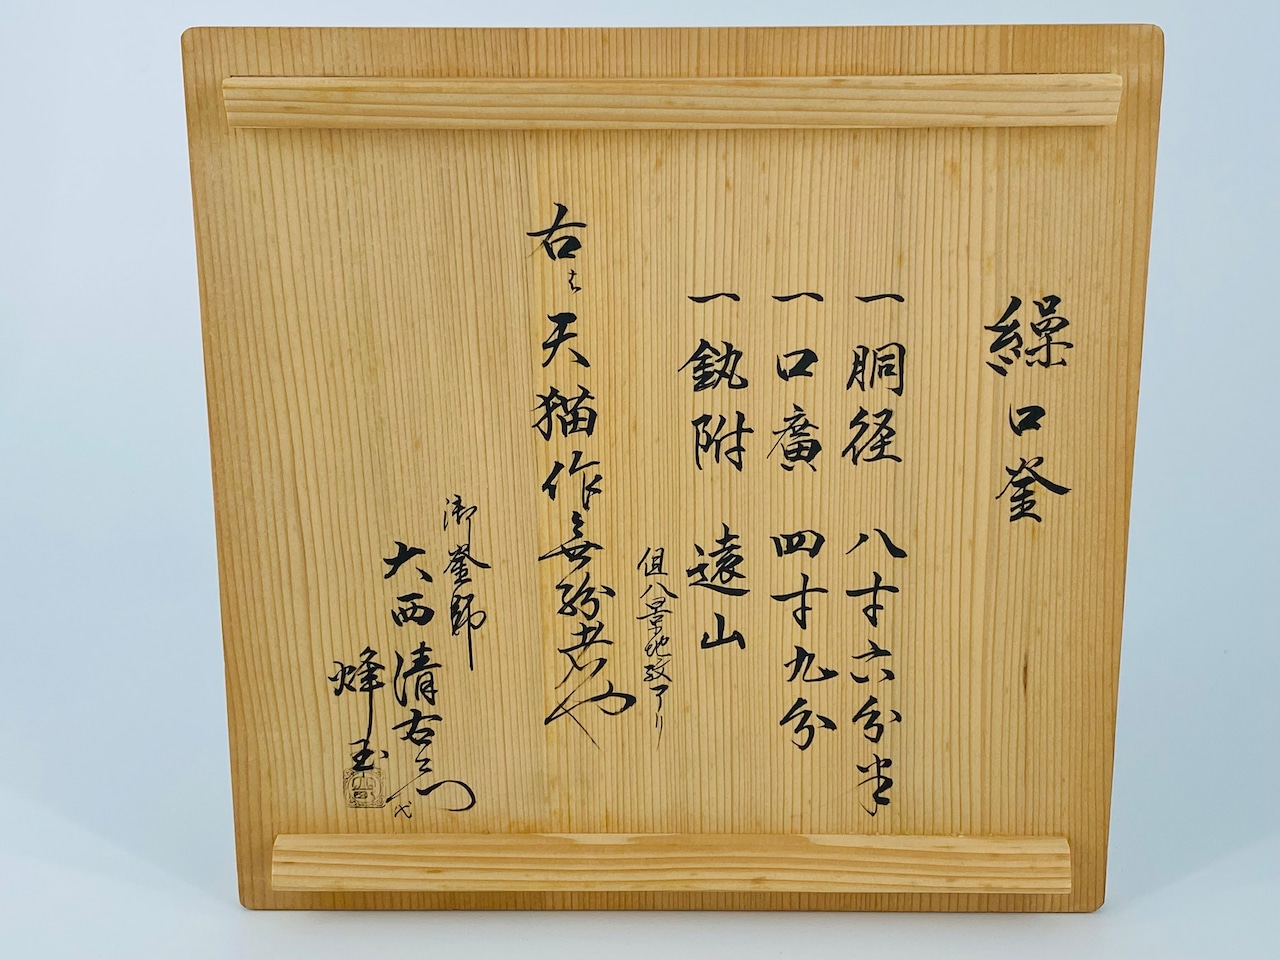 繰口釜
一胴径 八寸六分半
一口廣 四寸九分
一釻附 遠山
但八景地紋アリ
右ハ天猫作無紛者也
御釜師
大西清右衛門
代
烽玉